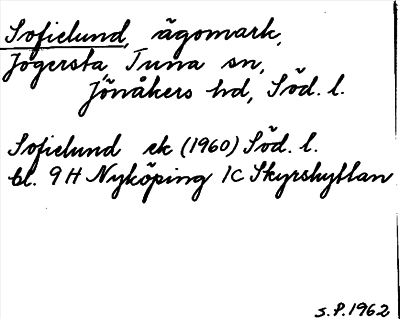 Sofielund, ägomark,
Jogersta, Tuna sn,
Jönåkers hd, Söd. l.
Sofielund ek (1960) Söd. l.
bl. 9H Nyköping 1C Skyrshyttan
S.P. 1962